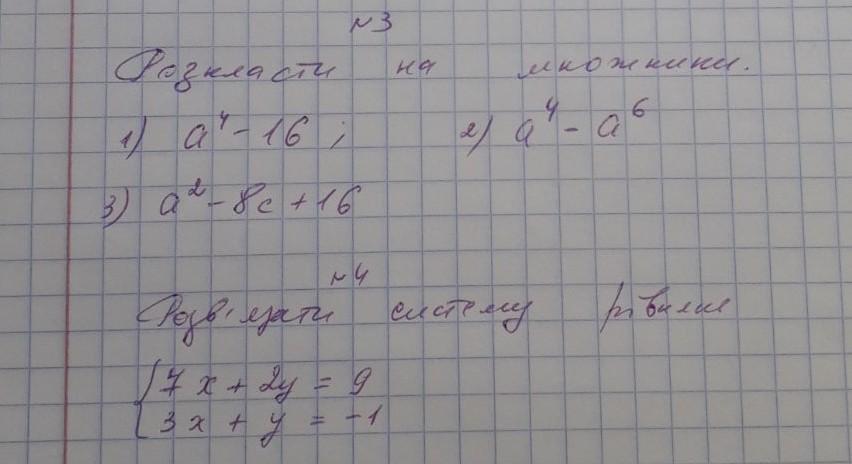 №3
Розкласти на множники.
1) a⁴ - 16 ; 2) a⁴ - a⁶
3) a² - 8c + 16
№4
Розв'язати систему рівнянь
{ 7x + 2y = 9
3x + y = -1